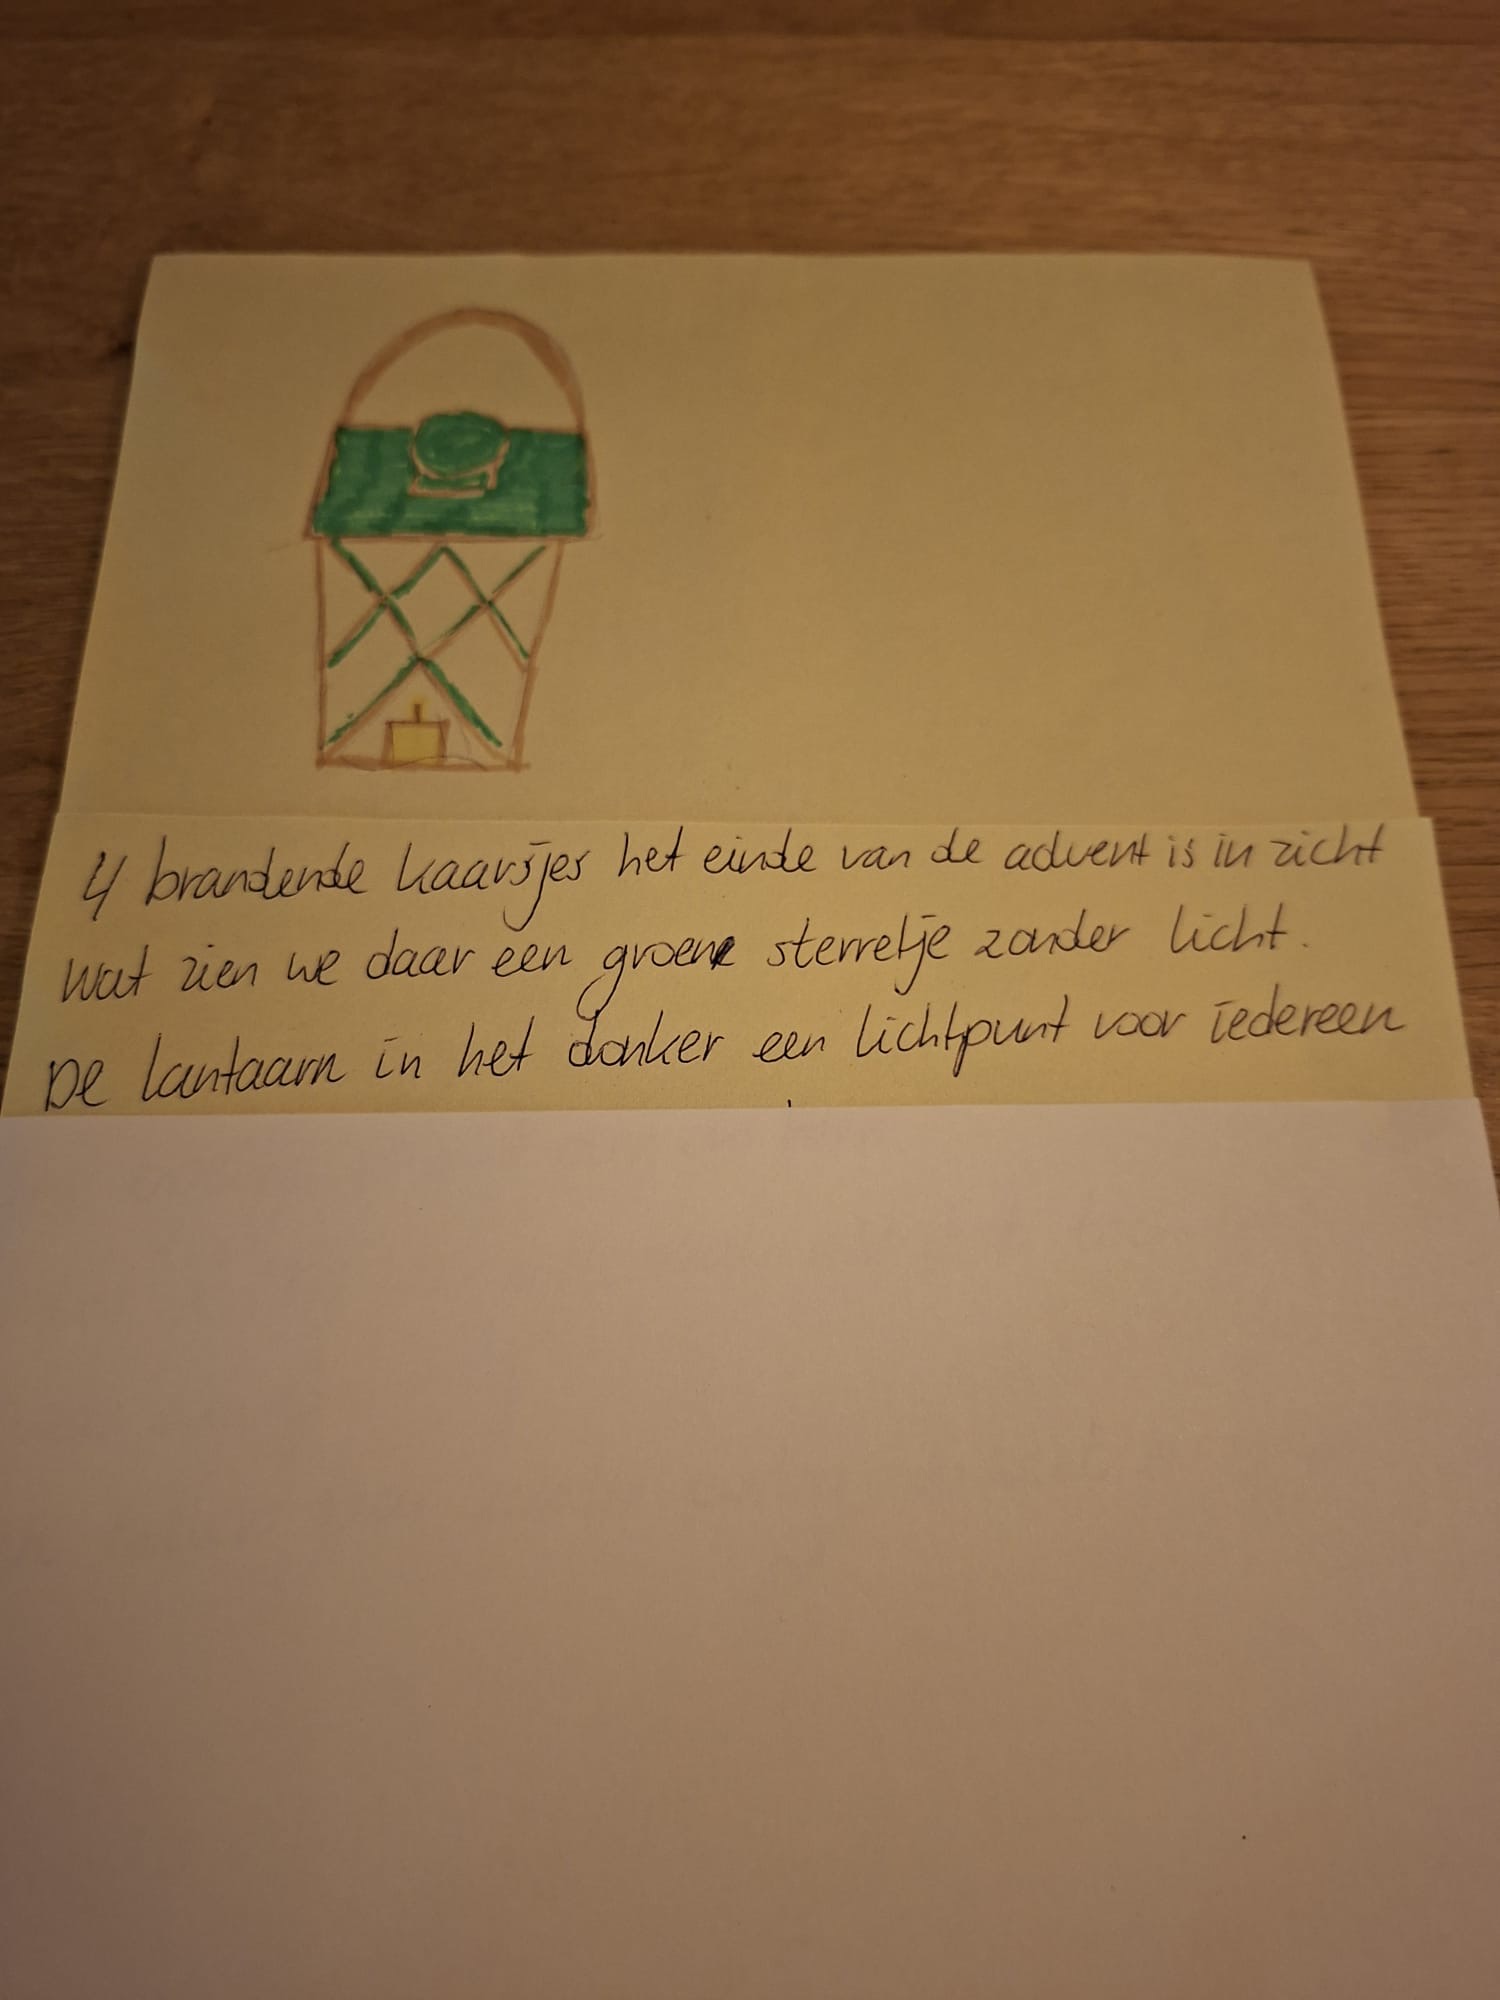 4 brandende kaarsjes het einde van de advent is in zicht
Wat zien we daar een groene sterretje zonder licht.
De lantaarn in het donker een lichtpunt voor iedereen